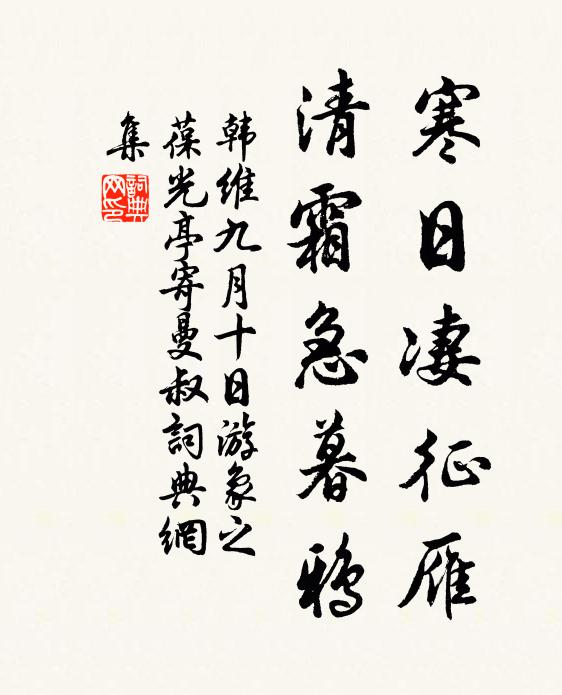 寒日凄征雁
清霜急暮鸦
韩维九月十日游象之
葆光亭寄曼叔詞典網
集
詞典网印